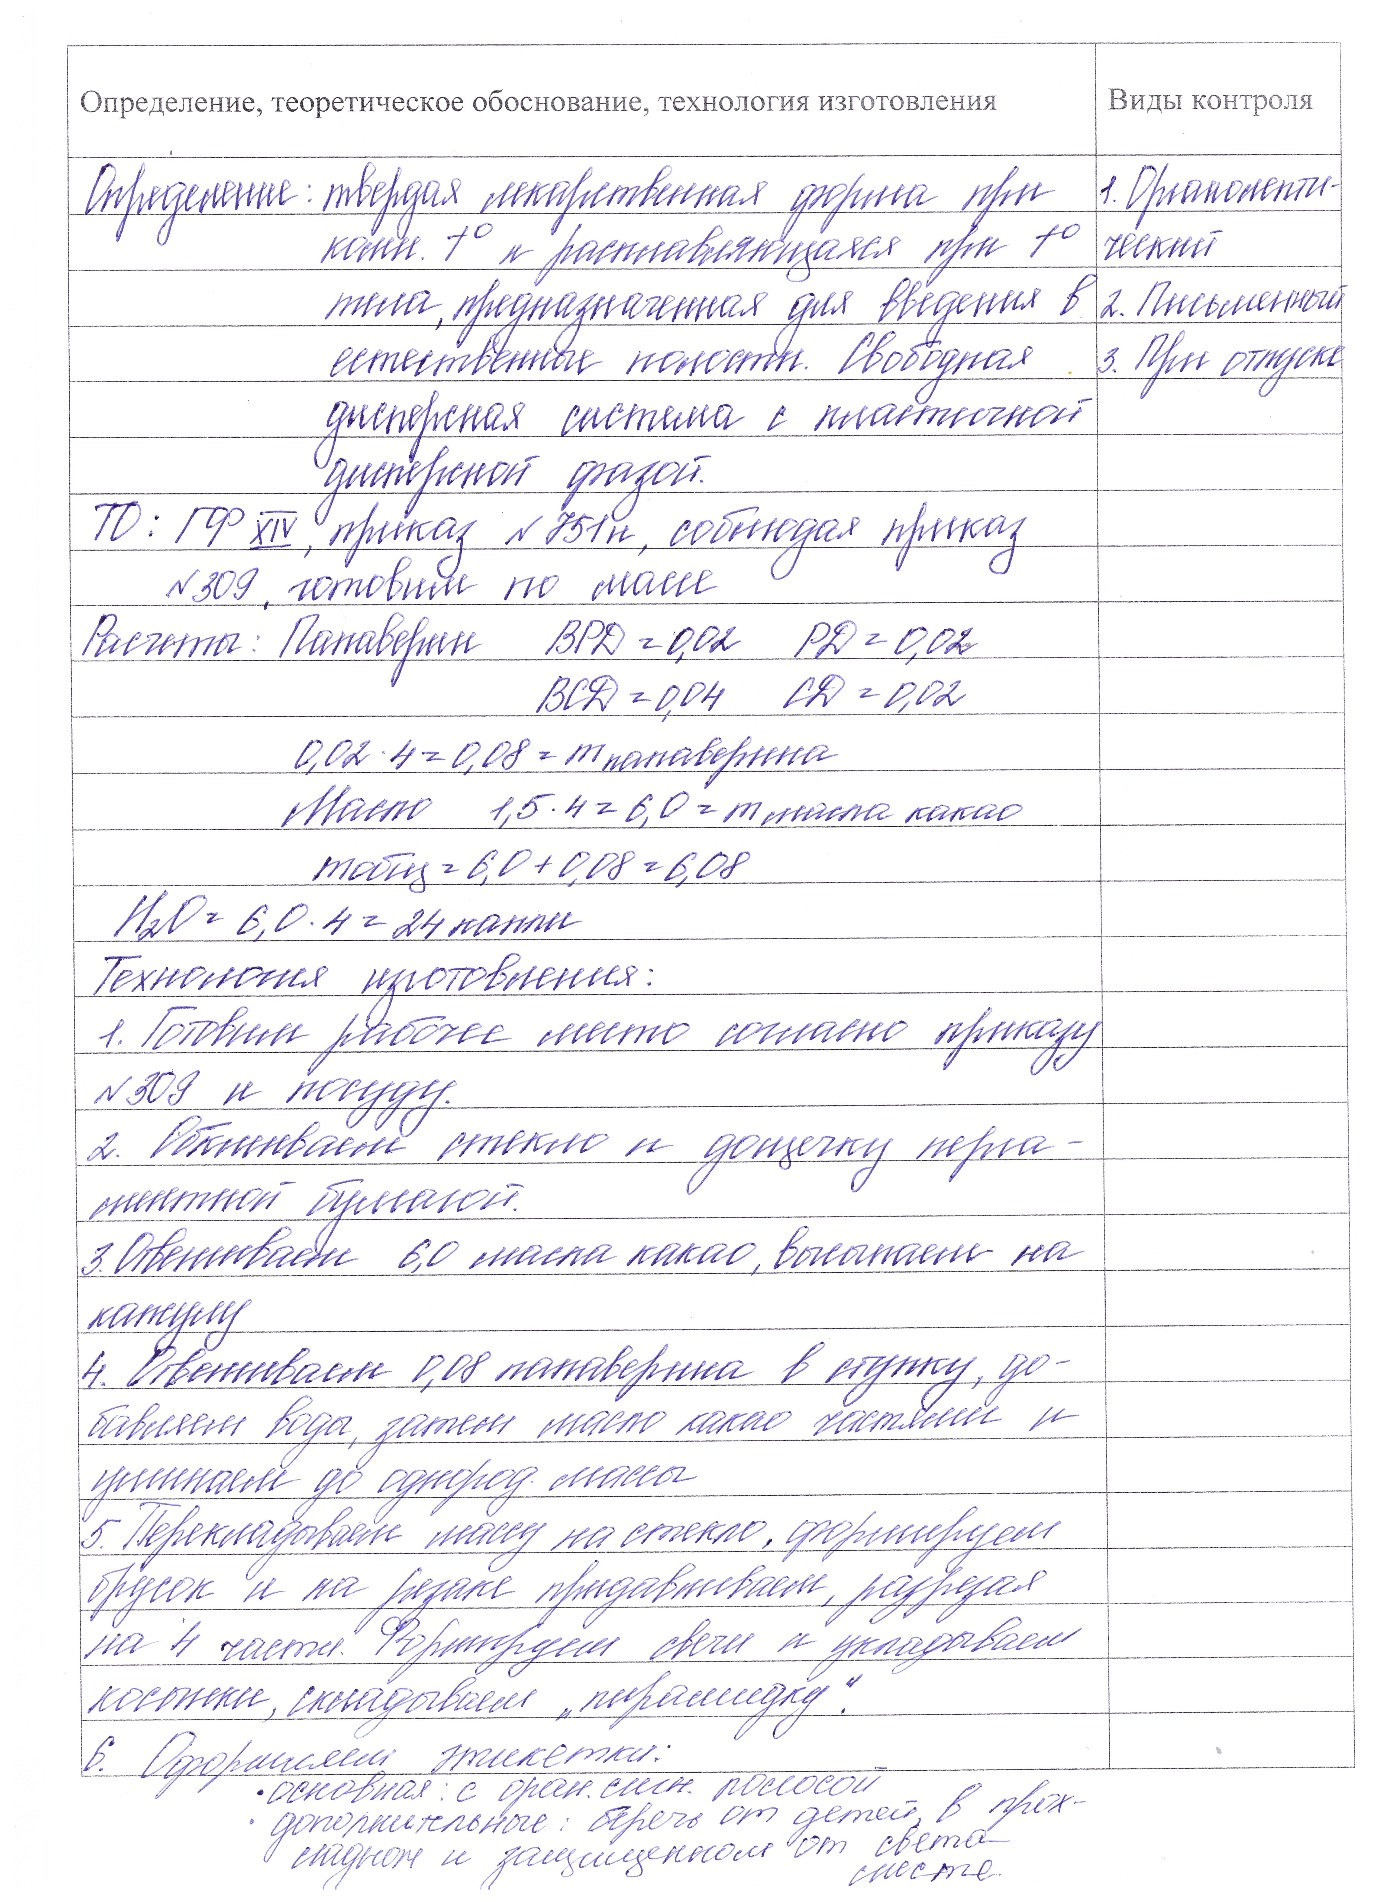 Определение, теоретическое обоснование, технология изготовления
Виды контроля
Определение: твердая лекарственная форма при
комн. t° и расплавляющаяся при t°
тела, предназначенная для введения в
естественные полости. Свободная
дисперсная система с пластичной
дисперсной фазой.
ТО: ГФ XIV, приказ №751н, соблюдая приказ
№309, готовим по массе
Расчеты: Папаверин ВРД = 0,02 РД = 0,02
ВСД = 0,04 СД = 0,02
0,02 · 4 = 0,08 = m папаверина
Масло 1,5 · 4 = 6,0 = m масла какао
mобщ = 6,0 + 0,08 = 6,08
H₂O = 6,0 · 4 = 24 капли
Технология изготовления:
1. Готовим рабочее место согласно приказу
№309 и посуду.
2. Обклеиваем стекло и дощечку перга-
ментной бумагой.
3. Отвешиваем 6,0 масла какао, высыпаем на
капсулу
4. Отвешиваем 0,08 папаверина в ступку, до-
бавляем воды, затем масло какао частями и
уминаем до однород. массы
5. Перекладываем массу на стекло, формируем
брусок и на резаке придавливаем, разрезая
на 4 части. Формируем свечи и укладываем
косынки, складываем „пирамидку".
6. Оформляем этикетки:
· основная: с оран. сигн. полосой
· дополнительные: беречь от детей, в прох-
ладном и защищенном от света
месте.
1. Органолепти-
ческий
2. Письменный
3. При отпуске